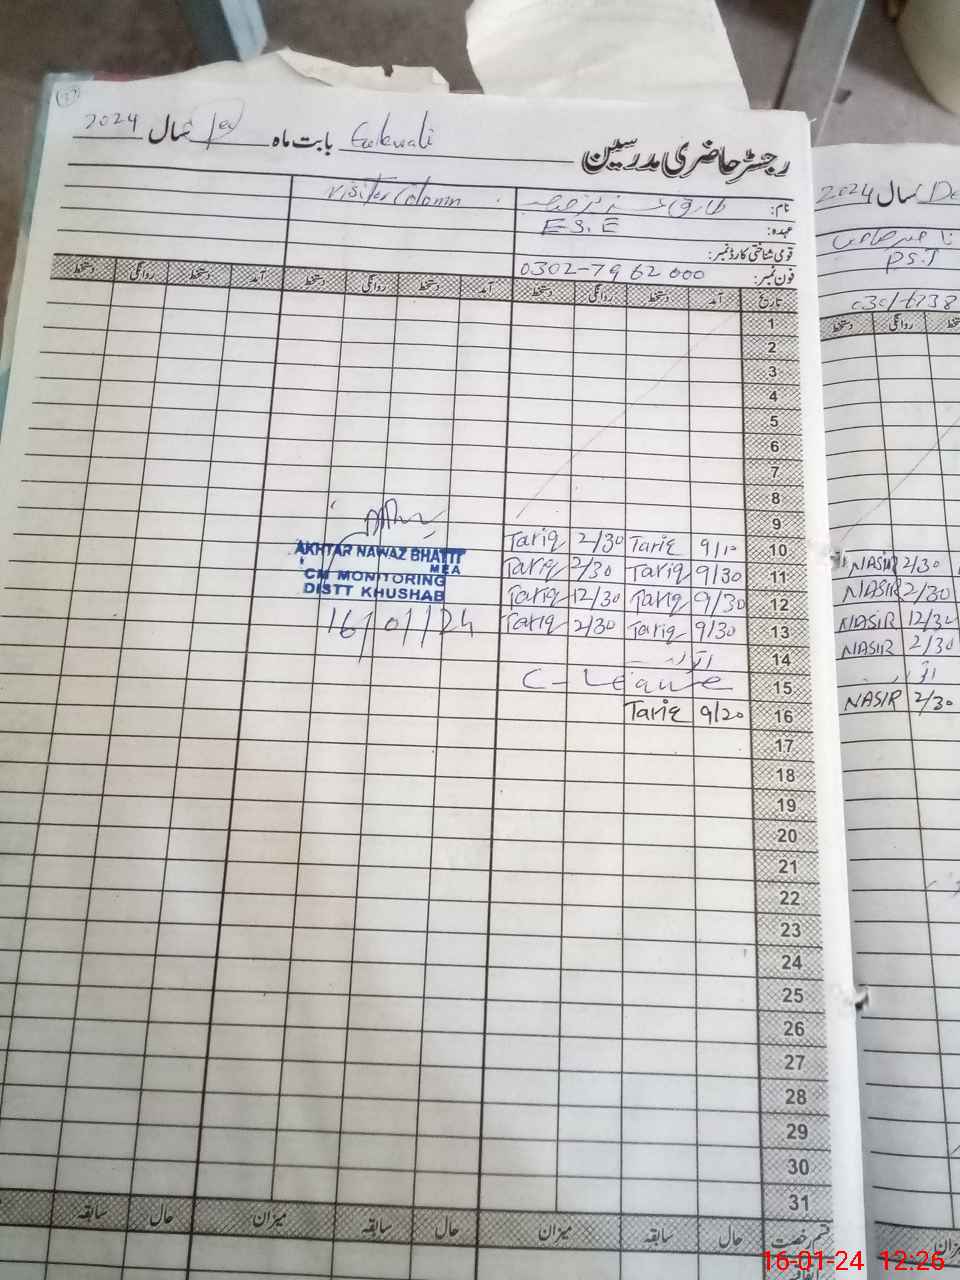 رجسٹر حاضری مدرسین
بابت ماہ
سال
2024
Visiter Column
نام: طارق
عہدہ: E S. E
قومی شناختی کارڈ نمبر:
فون نمبر: 0302-7962000
تاریخ آمد دستخط روانگی دستخط آمد دستخط روانگی دستخط آمد دستخط روانگی دستخط
1
2
3
4
5
6
7
8
9
10 9/10 Tariq 2/30 Tariq
11 9/30 Tariq 2/30 Tariq
12 9/30 Tariq 12/30 Tariq
13 9/30 Tariq 2/30 Tariq
14 اتوار
15 C-Leave
16 9/20 Tariq
17
18
19
20
21
22
23
24
25
26
27
28
29
30
31
AKHTAR NAWAZ BHATTI
MEA
CM MONITORING
DISTT KHUSHAB
16/01/24
قسم رخصت حال سابقہ میزان حال سابقہ میزان حال سابقہ
اتفاقیہ
2024 سال
PST
روانگی دستخط
NASIR 2/30
NASIR 2/30
NASIR 12/30
NASIR 2/30
اتوار
NASIR 2/30
16-01-24 12:26